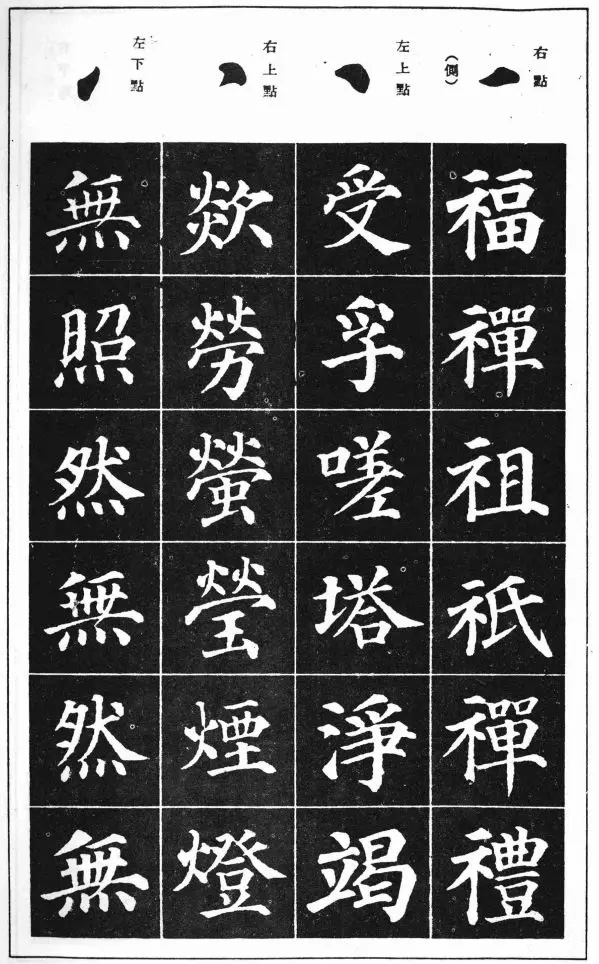 右點
（側）
福禪祖祇禪禮
左上點
受孚嗟塔淨竭
右上點
欻勞螢瑩煙燈
左下點
無照然無然無